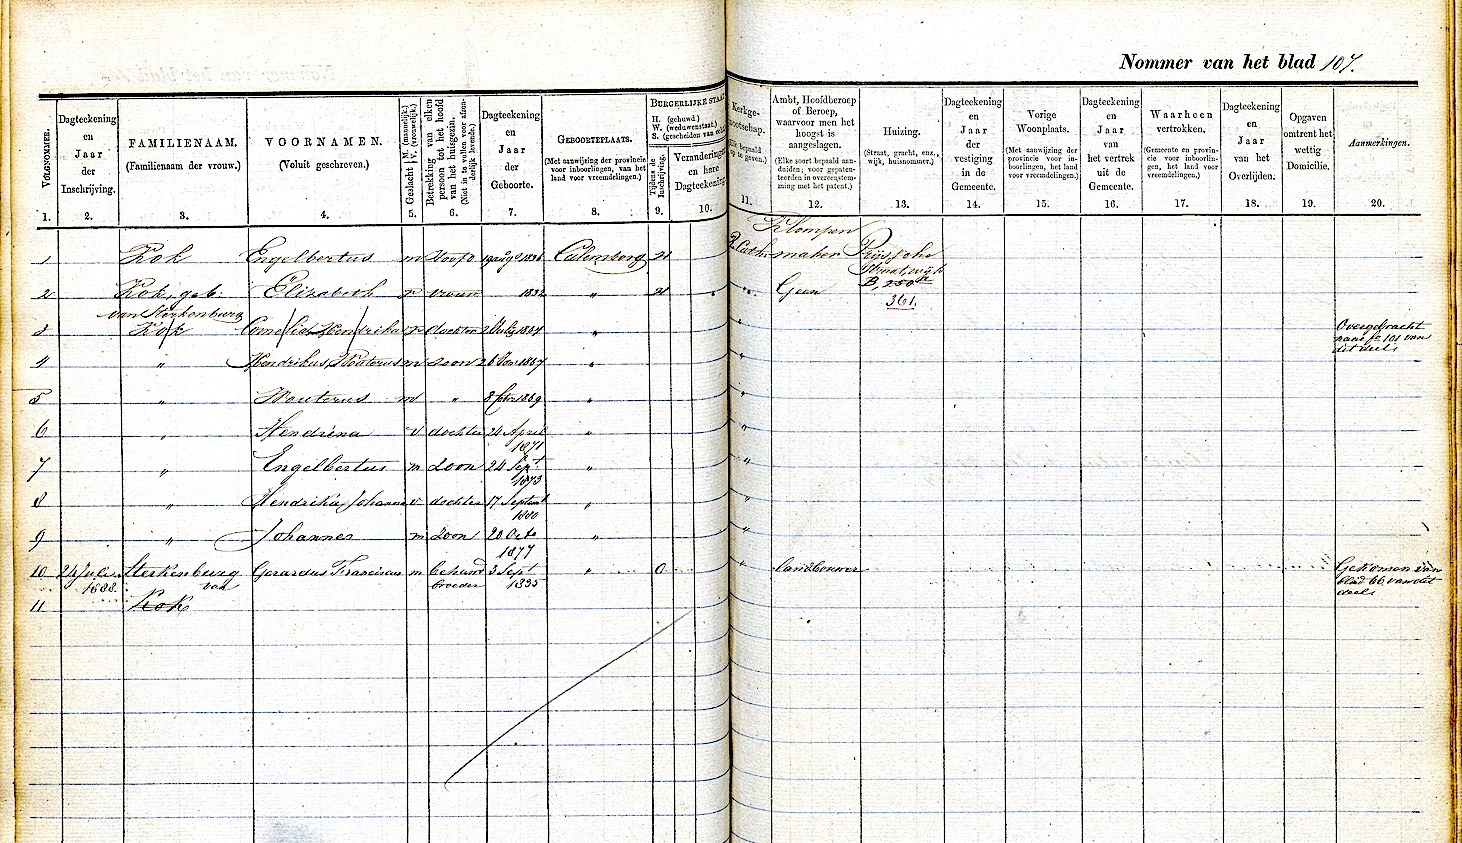 Nommer van het blad 107.
VOLGNOMMER.
Dagteekening en Jaar der Inschrijving.
FAMILIENAAM.
(Familienaam der vrouw.)
VOORNAMEN.
(Voluit geschreven.)
Geslacht M. (mannelijk.) V. (vrouwelijk.)
Betrekking van elken persoon tot het hoofd van het huisgezin.
Dagteekening en Jaar der Geboorte.
GEBOORTEPLAATS.
(Met aanwijzing der provincie voor inboorlingen, van het land voor vreemdelingen.)
BURGERLIJKE STAAT
H. (gehuwd.)
W. (weduwenstaat.)
S. (gescheiden van echt
Tijdens de Inschrijving.
Veranderingen en hare Dagteekening
Kerkge-
nootschap.
Ambt, Hoofdberoep of Beroep, waarvoor men het hoogst is aangeslagen.
(Elke soort bepaald aanduiden; voor gepatenteerden in overeenstemming met het patent.)
Huizing.
(Straat, gracht, enz., wijk, huisnommer.)
Dagteekening en Jaar der vestiging in de Gemeente.
Vorige Woonplaats.
(Met aanwijzing der provincie voor inboorlingen, het land voor vreemdelingen.)
Dagteekening en Jaar van het vertrek uit de Gemeente.
Waarheen vertrokken.
(Gemeente en provincie voor inboorlingen, het land voor vreemdelingen.)
Dagteekening en Jaar van het Overlijden.
Opgaven omtrent het wettig Domicilie.
Aanmerkingen.
1. 2. 3. 4. 5. 6. 7. 8. 9. 10. 11. 12. 13. 14. 15. 16. 17. 18. 19. 20.
Klompen
1 Kok Engelbertus m Hoofd 19 aug 1836 Culemborg H R. Cath. maker
2 Kok, geb: Elizabeth v vrouw 1832 " H " Geen B, 250
van Sterkenburg 361.
3 Kok Cornelia Hendrika v dochter 1864 " " Overgebracht
naar fo 101 van
dit deel
4 " Hendrikus Wouterus m zoon 26 Jan 1867 " "
5 " Wouterus m " 1869 " "
6 " Hendrina v dochter 24 April " "
1871
7 " Engelbertus m Zoon 24 Sept " "
1873
8 " Hendrika Johanna v dochter 17 Septemb " "
1880
9 " Johannes m Zoon 20 Octo " "
1877
10 24 Juli Sterkenburg Gerardus Franciscus m behuwd 3 Sept " O " landbouwer Gekomen van
1888 van broeder 1835 blad 66 van dit
deel
11 Kok